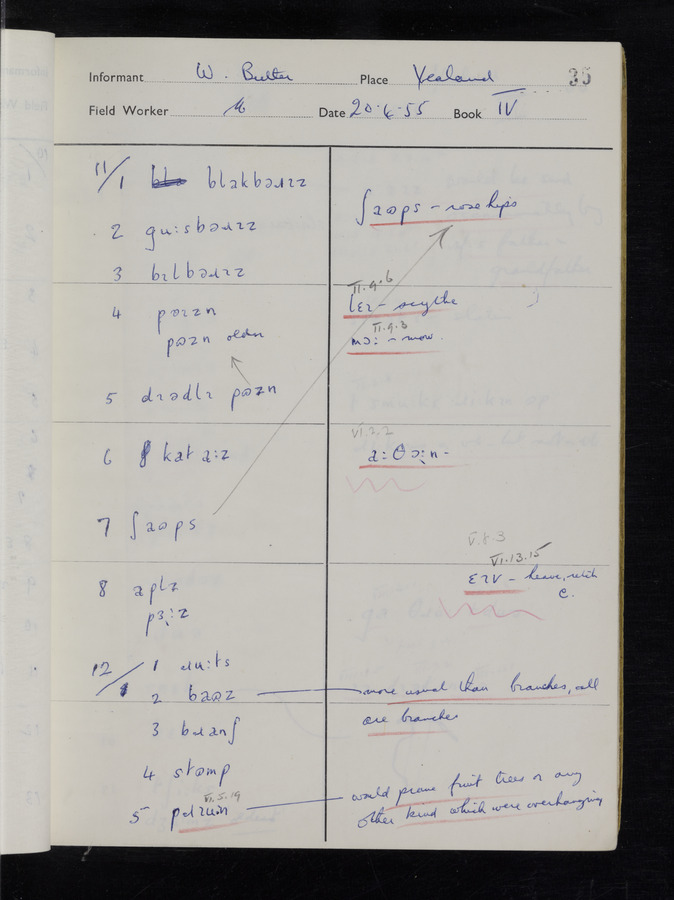 Informant W. Butler Place Yealand 35
Field Worker Date 20·4·55 Book IV
11/1 blakbəɹɪz
2 gu:sbəɹɪz
3 bɪlbəɹɪz
4 pɷɪzn
pɷzn older
5 dɪədlɪ pɷzn
6 kat a:z
7 ʃaɷps
8 aplz
pɜ:z
12/1 ɹu:ts
2 baɷz
3 bɹanʃ
4 stɷmp
VI.5.19
5 pɹɪuɪn
ʃaɷps – rose hips
II.9.6
lɛɪ – scythe
II.9.3
mɔ: – mow.
VI.2.2
a: θɔ:n –
V.8.3
VI.13.15
ɛɪv – heave, retch
c.
more usual than branches, all
are branches
would prune fruit trees or any
other kind which were overhanging